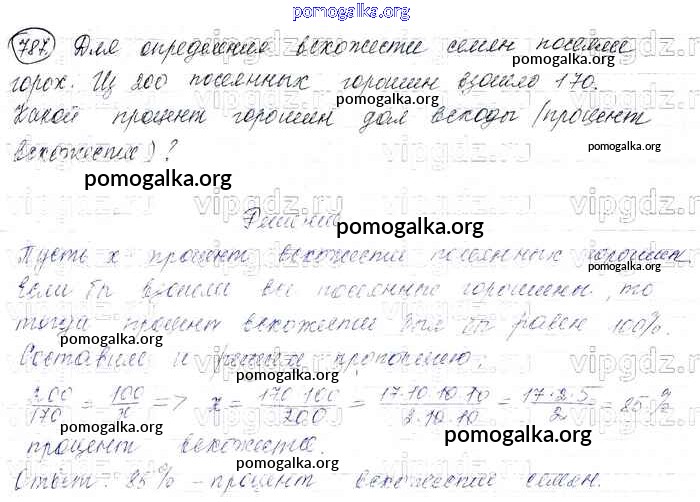 pomogalka.org
787 Для определения всхожести семян посеяли
горох. Из 200 посеянных горошин взошло 170.
pomogalka.org
Какой процент горошин дал всходы (процент
pomogalka.org
всхожести)?
pomogalka.org
vipgdz.ru
Решение
pomogalka.org
Пусть x - процент всхожести посеянных горошин.
pomogalka.org
Если бы взошли все посеянные горошины, то
тогда процент всхожести был бы равен 100%.
pomogalka.org
Составим и решим пропорцию:
pomogalka.org
200/170 = 100/x => x = 170·100/200 = 17·10·10·10/2·10·10 = 17·2·5/2 = 85%
процент всхожести.
pomogalka.org
Ответ: 85% - процент всхожести семян.
pomogalka.org